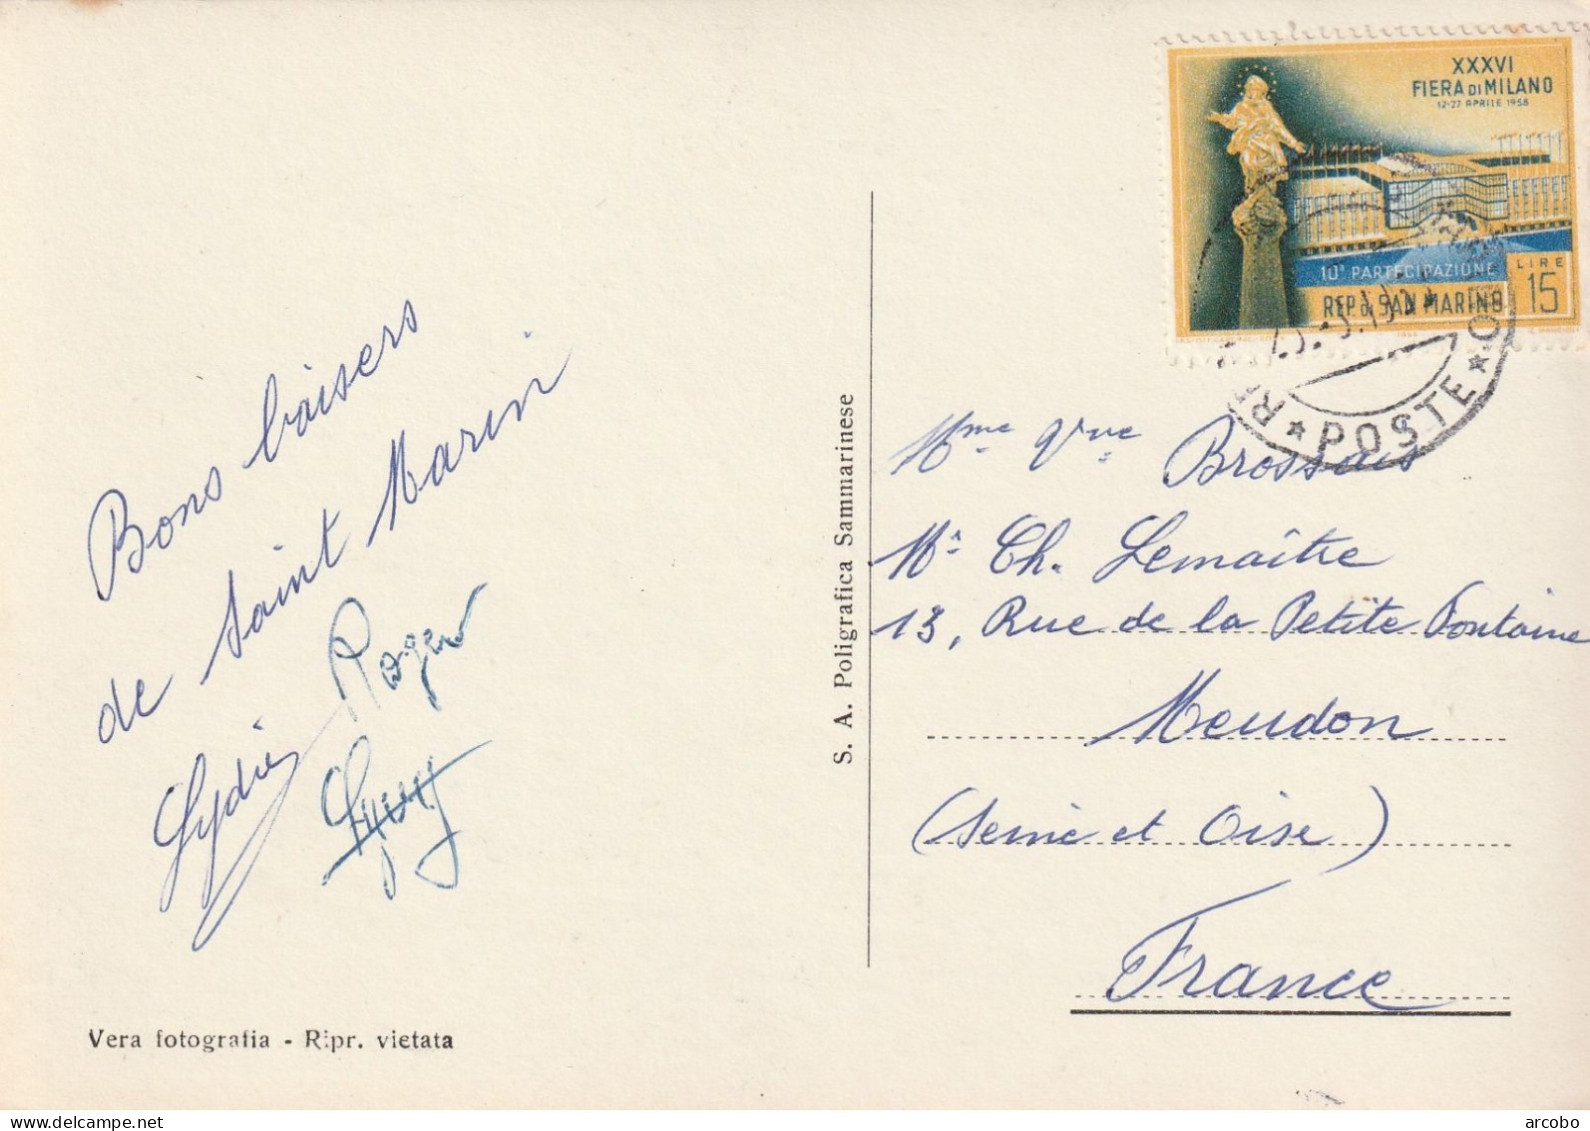 Bons baisers
de Saint Marin
Lydie
Roger
Vera fotografia - Ripr. vietata
S. A. Poligrafica Sammarinese
XXXVI
FIERA DI MILANO
12-27 APRILE 1958
10ª PARTECIPAZIONE
LIRE
15
REP. DI SAN MARINO
POSTE
Mme Vve Brossais
Mr Ch. Lemaître
13, Rue de la Petite Fontaine
Meudon
(Seine et Oise)
France
delcampe.net
arcobo